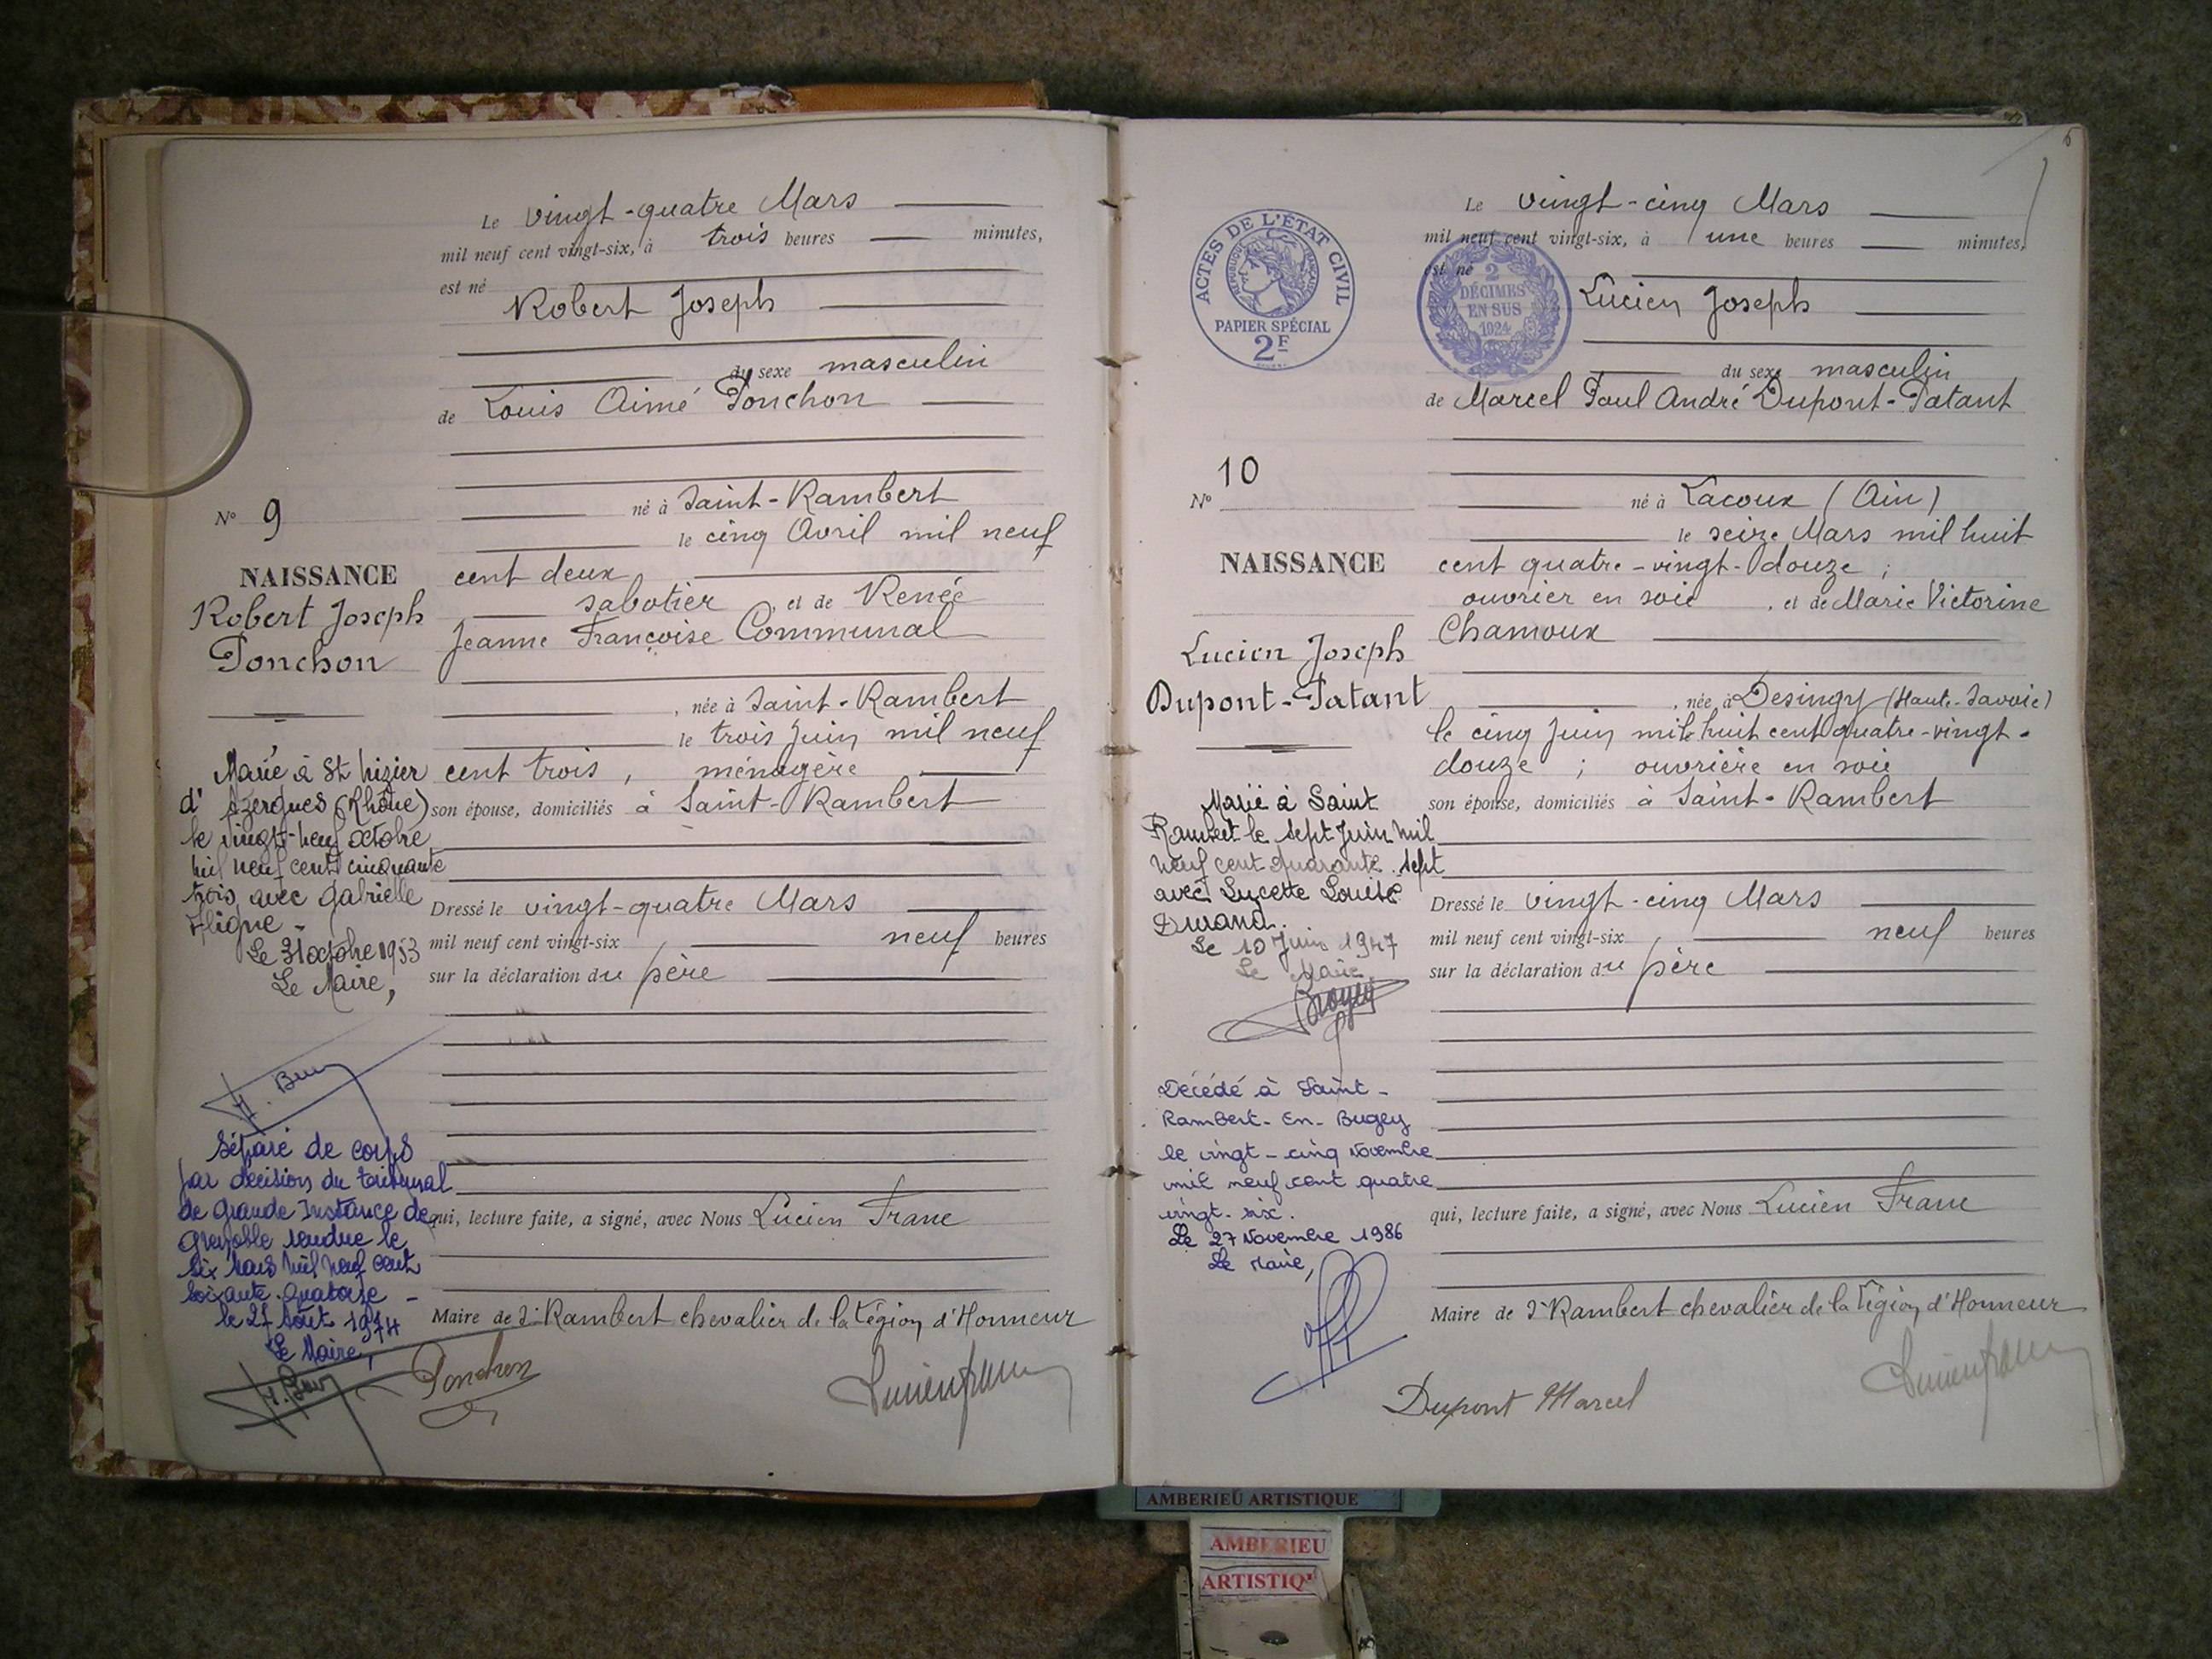 Le vingt-quatre Mars
mil neuf cent vingt-six, à trois heures minutes,
est né
Robert Joseph
du sexe masculin
de Louis Aimé Ponchon
né à Saint-Rambert
N° 9
le cinq Avril mil neuf
NAISSANCE
cent deux
sabotier, et de Renée
Robert Joseph
Ponchon
Jeanne Françoise Communal
, née à Saint-Rambert
le trois Juin mil neuf
cent trois, ménagère
son épouse, domiciliés à Saint-Rambert
Marié à St Nizier
d'Azergues (Rhône)
le vingt-neuf octobre
mil neuf cent cinquante
trois avec Gabrielle
Le 31 octobre 1953
Le Maire,
Dressé le vingt-quatre Mars
mil neuf cent vingt-six neuf heures
sur la déclaration du père
Séparé de corps
par décision du tribunal
de Grande Instance de
Grenoble rendue le
six Mars mil neuf cent
soixante-quatorze -
le 27 Août 1974
Le Maire,
qui, lecture faite, a signé, avec Nous Lucien Franc
Maire de St Rambert chevalier de la Légion d'Honneur
Ponchon
Lucien Franc
6
Le vingt-cinq Mars
mil neuf cent vingt-six, à une heures minutes,
est né
Lucien Joseph
ACTES DE L'ÉTAT CIVIL
RÉPUBLIQUE FRANÇAISE
PAPIER SPÉCIAL
2F
2
DÉCIMES
EN SUS
1924
du sexe masculin
de Marcel Paul André Dupont-Patant
N° 10
né à Lacoux (Ain)
le seize Mars mil huit
NAISSANCE
cent quatre-vingt-douze ;
ouvrier en soie, et de Marie Victorine
Chamoux
Lucien Joseph
Dupont-Patant
, née à Desingy (Haute-Savoie)
le cinq Juin mil huit cent quatre-vingt-
douze ; ouvrière en soie
son épouse, domiciliés à Saint-Rambert
Marié à Saint
Rambert le sept Juin mil
neuf cent quarante-sept
avec Lucette Louise
Durand.
Le 10 Juin 1947
Le Maire
Dressé le vingt-cinq Mars
mil neuf cent vingt-six neuf heures
sur la déclaration du père
Décédé à Saint-
Rambert-En-Bugey
le vingt-cinq Novembre
mil neuf cent quatre
vingt-six.
Le 27 Novembre 1986
Le Maire,
qui, lecture faite, a signé, avec Nous Lucien Franc
Maire de St Rambert chevalier de la Légion d'Honneur
Dupont Marcel
Lucien Franc
AMBERIEU ARTISTIQUE
AMBERIEU
ARTISTIQ